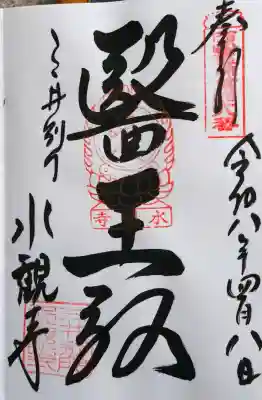 奉拝
令和八年四月八日
醫王殿
三井別所
水観寺